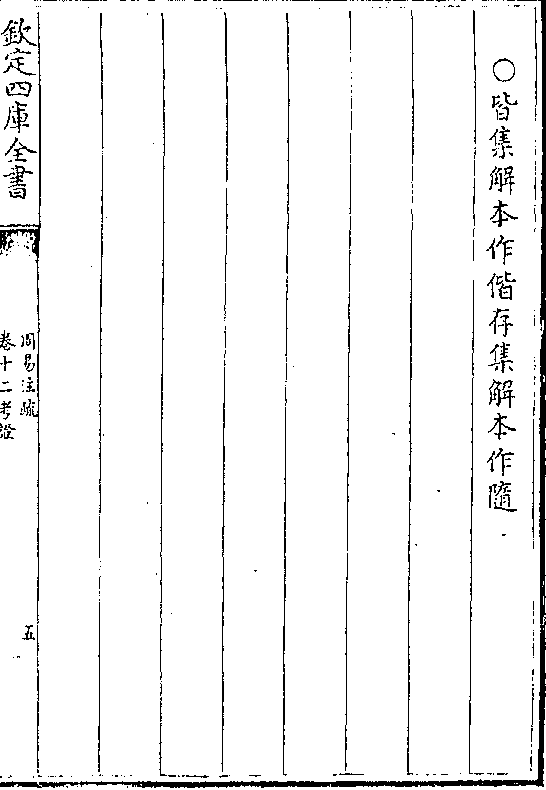 ○皆集解本作偕存集解本作隨
欽定四庫全書
周易注疏
卷十二考證
五